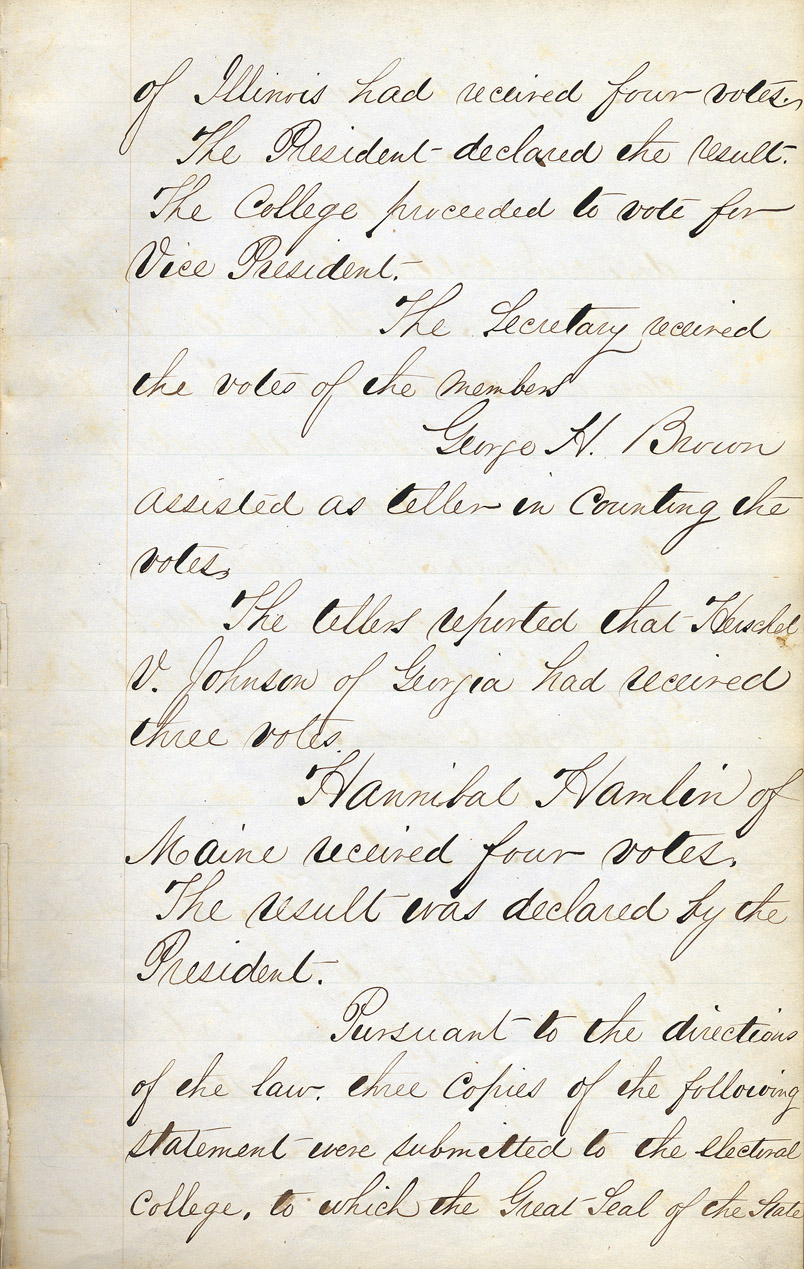 of Illinois had received four votes.
The President declared the result.
The College proceeded to vote for
Vice President.
The Secretary received
the votes of the members
George H. Brown
assisted as teller in counting the
votes.
The tellers reported that Herschel
V. Johnson of Georgia had received
three votes.
Hannibal Hamlin of
Maine received four votes.
The result was declared by the
President.
Pursuant to the directions
of the law. three copies of the following
statement were submitted to the electoral
college, to which the Great Seal of the State